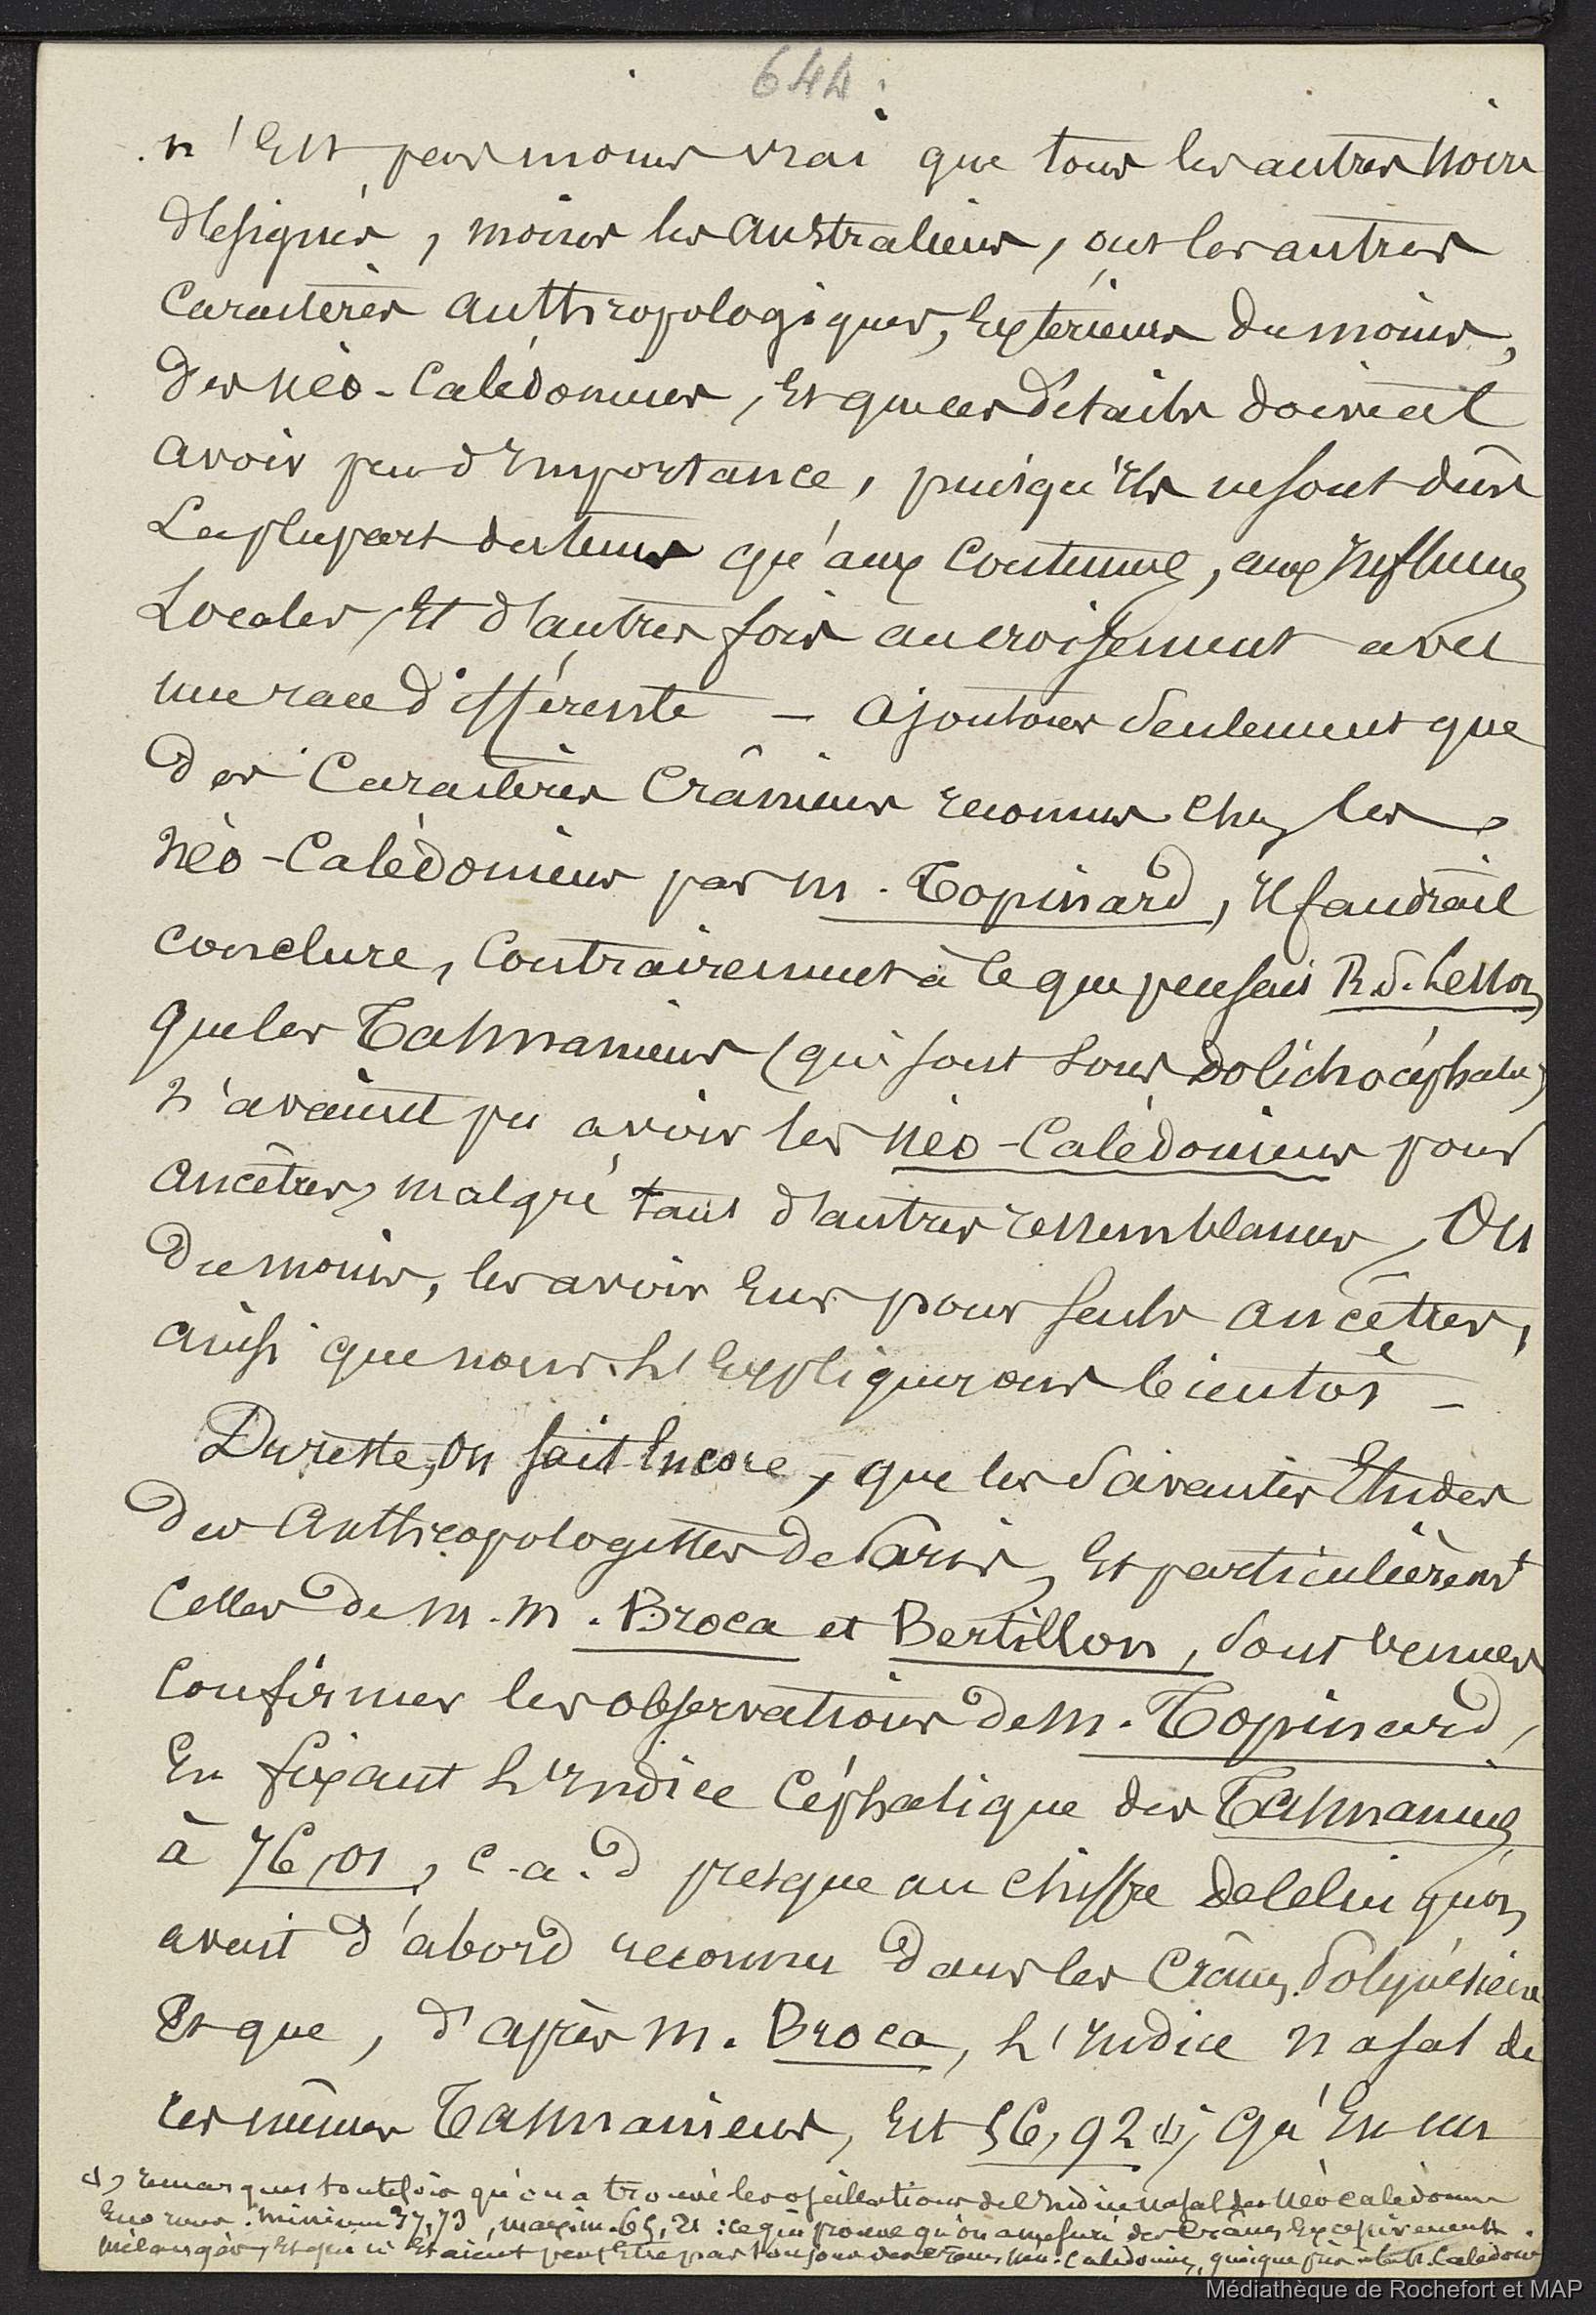 644.
n'est pas moins vrai que tous les autres noirs
désignés, moins les australiens, ont les autres
caractères anthropologiques, extérieurs du moins,
des néo-Calédoniens, Et que ces détails doivent
avoir peu d'importance, puisqu'ils ne sont dûs
La plupart du tems qu'aux coutumes, aux influences
Locales, Et d'autres fois au croisement avec
une race différente - ajoutons seulement que
des caractères crâniens reconnus chez les
Néo-Calédoniens par m. Topinard, il faudrait
conclure, contrairement à ce que pensait R.P. Lesson,
que les Tasmaniens (qui sont sous dolichocéphales)
n'avaient pu avoir les Néo-Calédoniens pour
ancêtres, malgré tant d'autres ressemblances, Ou
du moins, les avoir Eus pour seuls ancêtres,
ainsi que nous L'Expliquerons bientôt -
Dureste, on sait Encore, que les savantes Etudes
des Anthropologistes de Paris, Et particulièremt
celles de m. m. Broca et Bertillon, sont venues
confirmer les observations de m. Topinard,
En fixant L'indice céphalique des Tasmaniens
à 76,01, c.a.d presque au chiffre de celui qu'on
avait d'abord reconnu dans les crânes Polynésiens
Et que, d'après m. Broca, L'indice nasal de
ces mêmes Tasmaniens, Est 56,92 (1); qu'En un
(1) remarquons toutefois qu'on a trouvé les oscillations de l'indice nasal des Néo calédoniens
minimum 37,73, maxim. 65,21 : ce qui prouve qu'on a mesuré des crânes
mélangés, Et qui n'Etaient peut Etre pas toujours des crânes néo-calédoniens, quoique pris en N. Calédonie